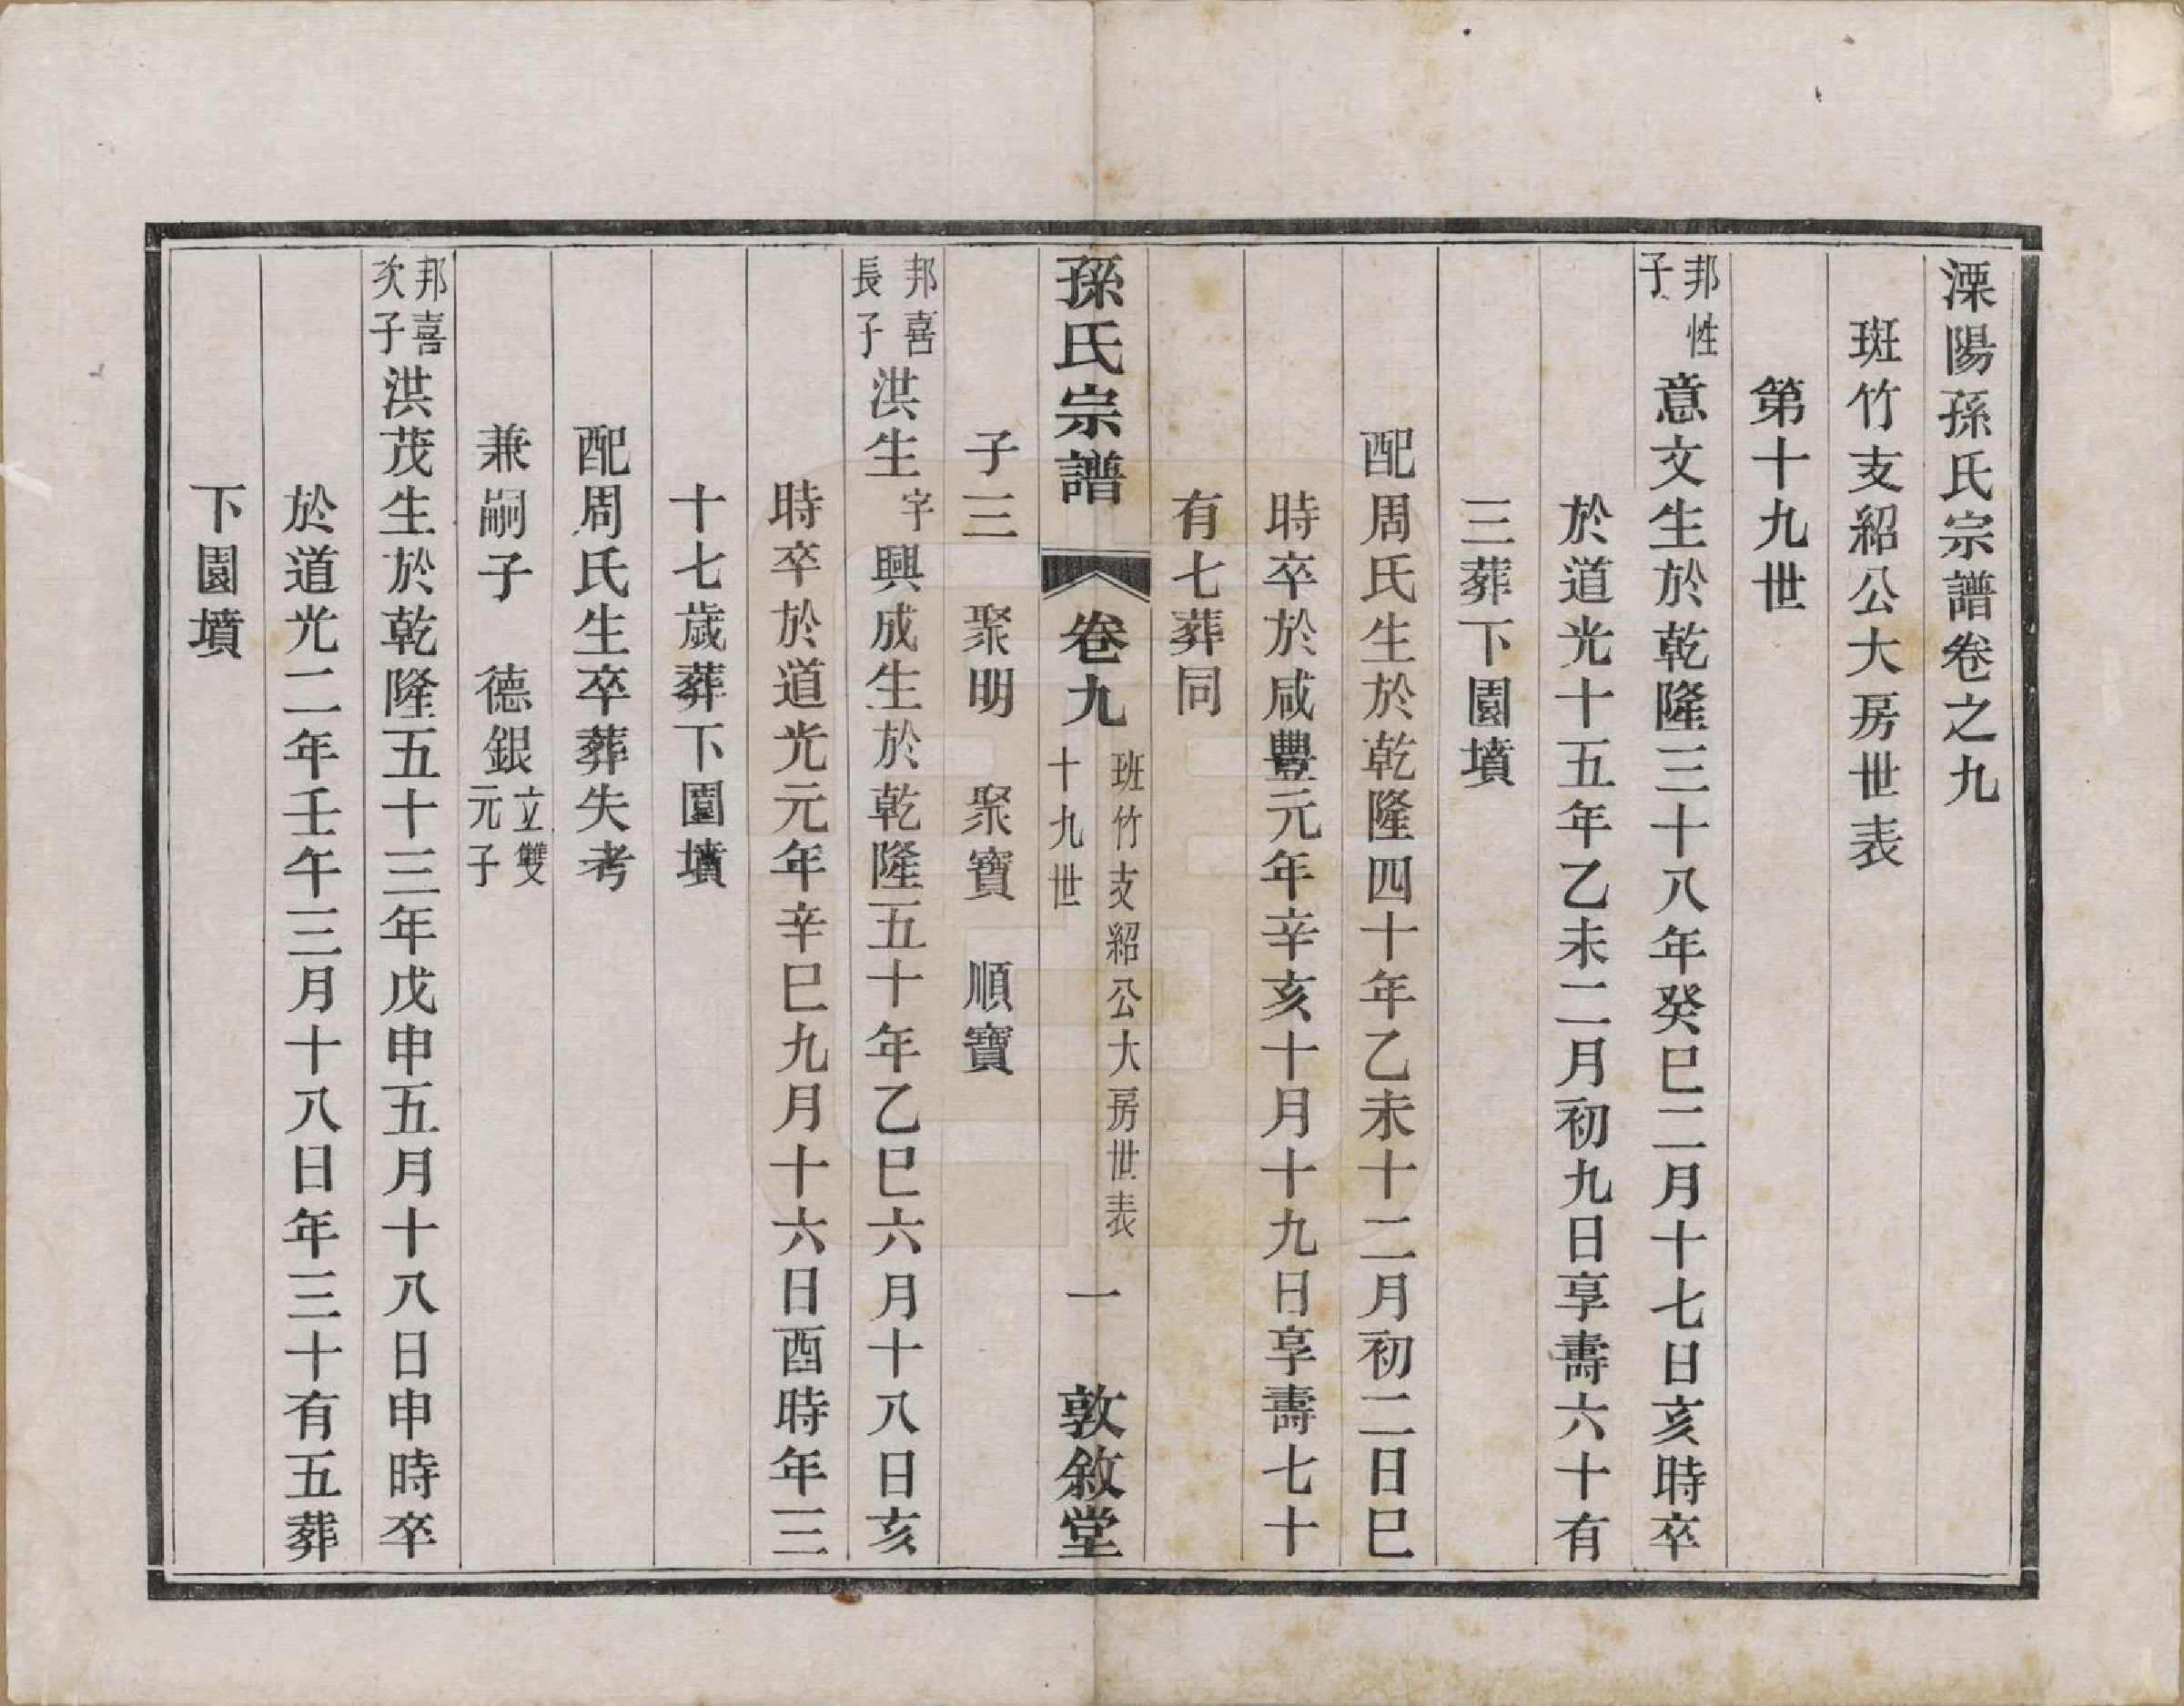 溧陽孫氏宗譜卷之九
斑竹支紹公大房世表
第十九世
邦性
子
意文生於乾隆三十八年癸巳二月十七日亥時卒
於道光十五年乙未二月初九日享壽六十有
三葬下園墳
配周氏生於乾隆四十年乙未十二月初二日巳
時卒於咸豐元年辛亥十月十九日享壽七十
有七葬同
孫氏宗譜 卷九
班竹支紹公大房世表
十九世
一 敦敘堂
子三 聚明 聚寶 順寶
邦喜
長子
洪生 字興成生於乾隆五十年乙巳六月十八日亥
時卒於道光元年辛巳九月十六日酉時年三
十七歲葬下園墳
配周氏生卒葬失考
兼嗣子 德銀
立雙
元子
邦喜
次子
洪茂生於乾隆五十三年戊申五月十八日申時卒
於道光二年壬午三月十八日年三十有五葬
下園墳